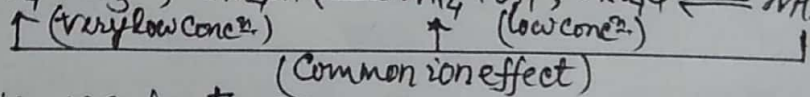 (very low concn.) (low concn.)
(Common ion effect)